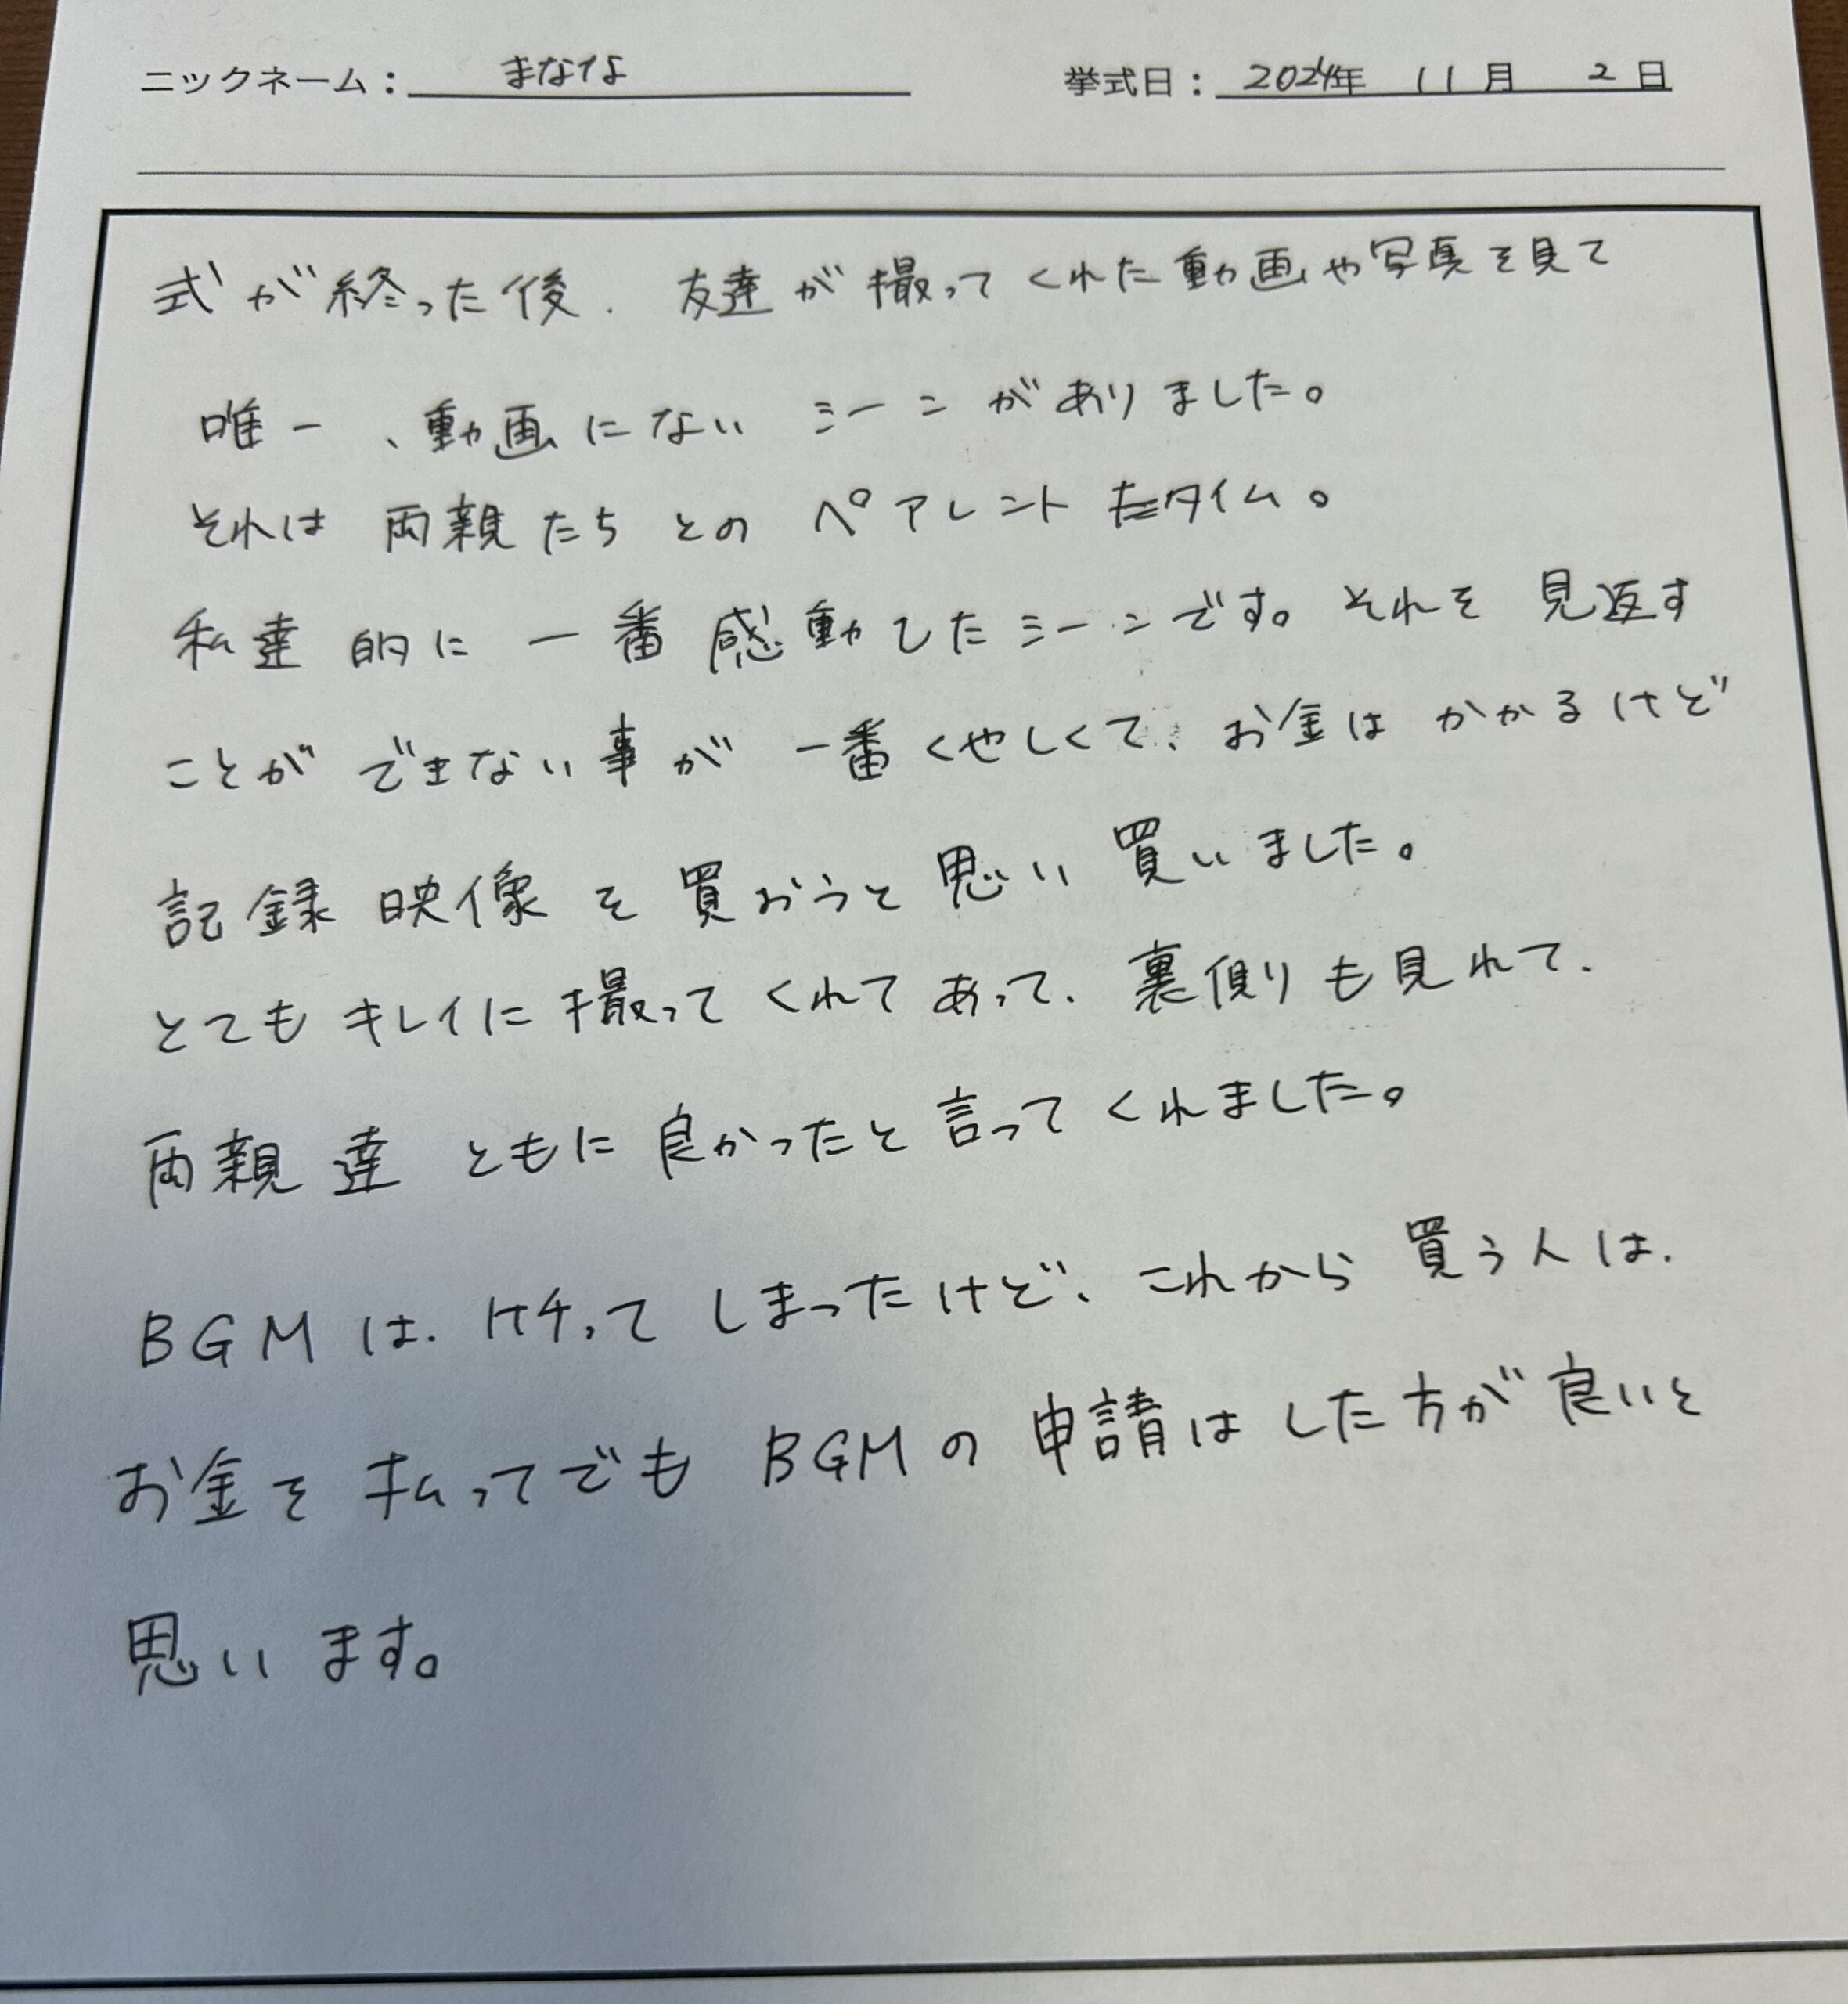 ニックネーム： まなな 挙式日： 2024年 11月 2日
式が終った後、友達が撮ってくれた動画や写真を見て
唯一、動画にないシーンがありました。
それは両親たちとのペアレントタイム。
私達的に一番感動したシーンです。それを見返す
ことができない事が一番くやしくて、お金はかかるけど
記録映像を買おうと思い買いました。
とてもキレイに撮ってくれてあって、裏側りも見れて、
両親達ともに良かったと言ってくれました。
BGMは、ケチってしまったけど、これから買う人は、
お金を払ってでもBGMの申請はした方が良いと
思います。